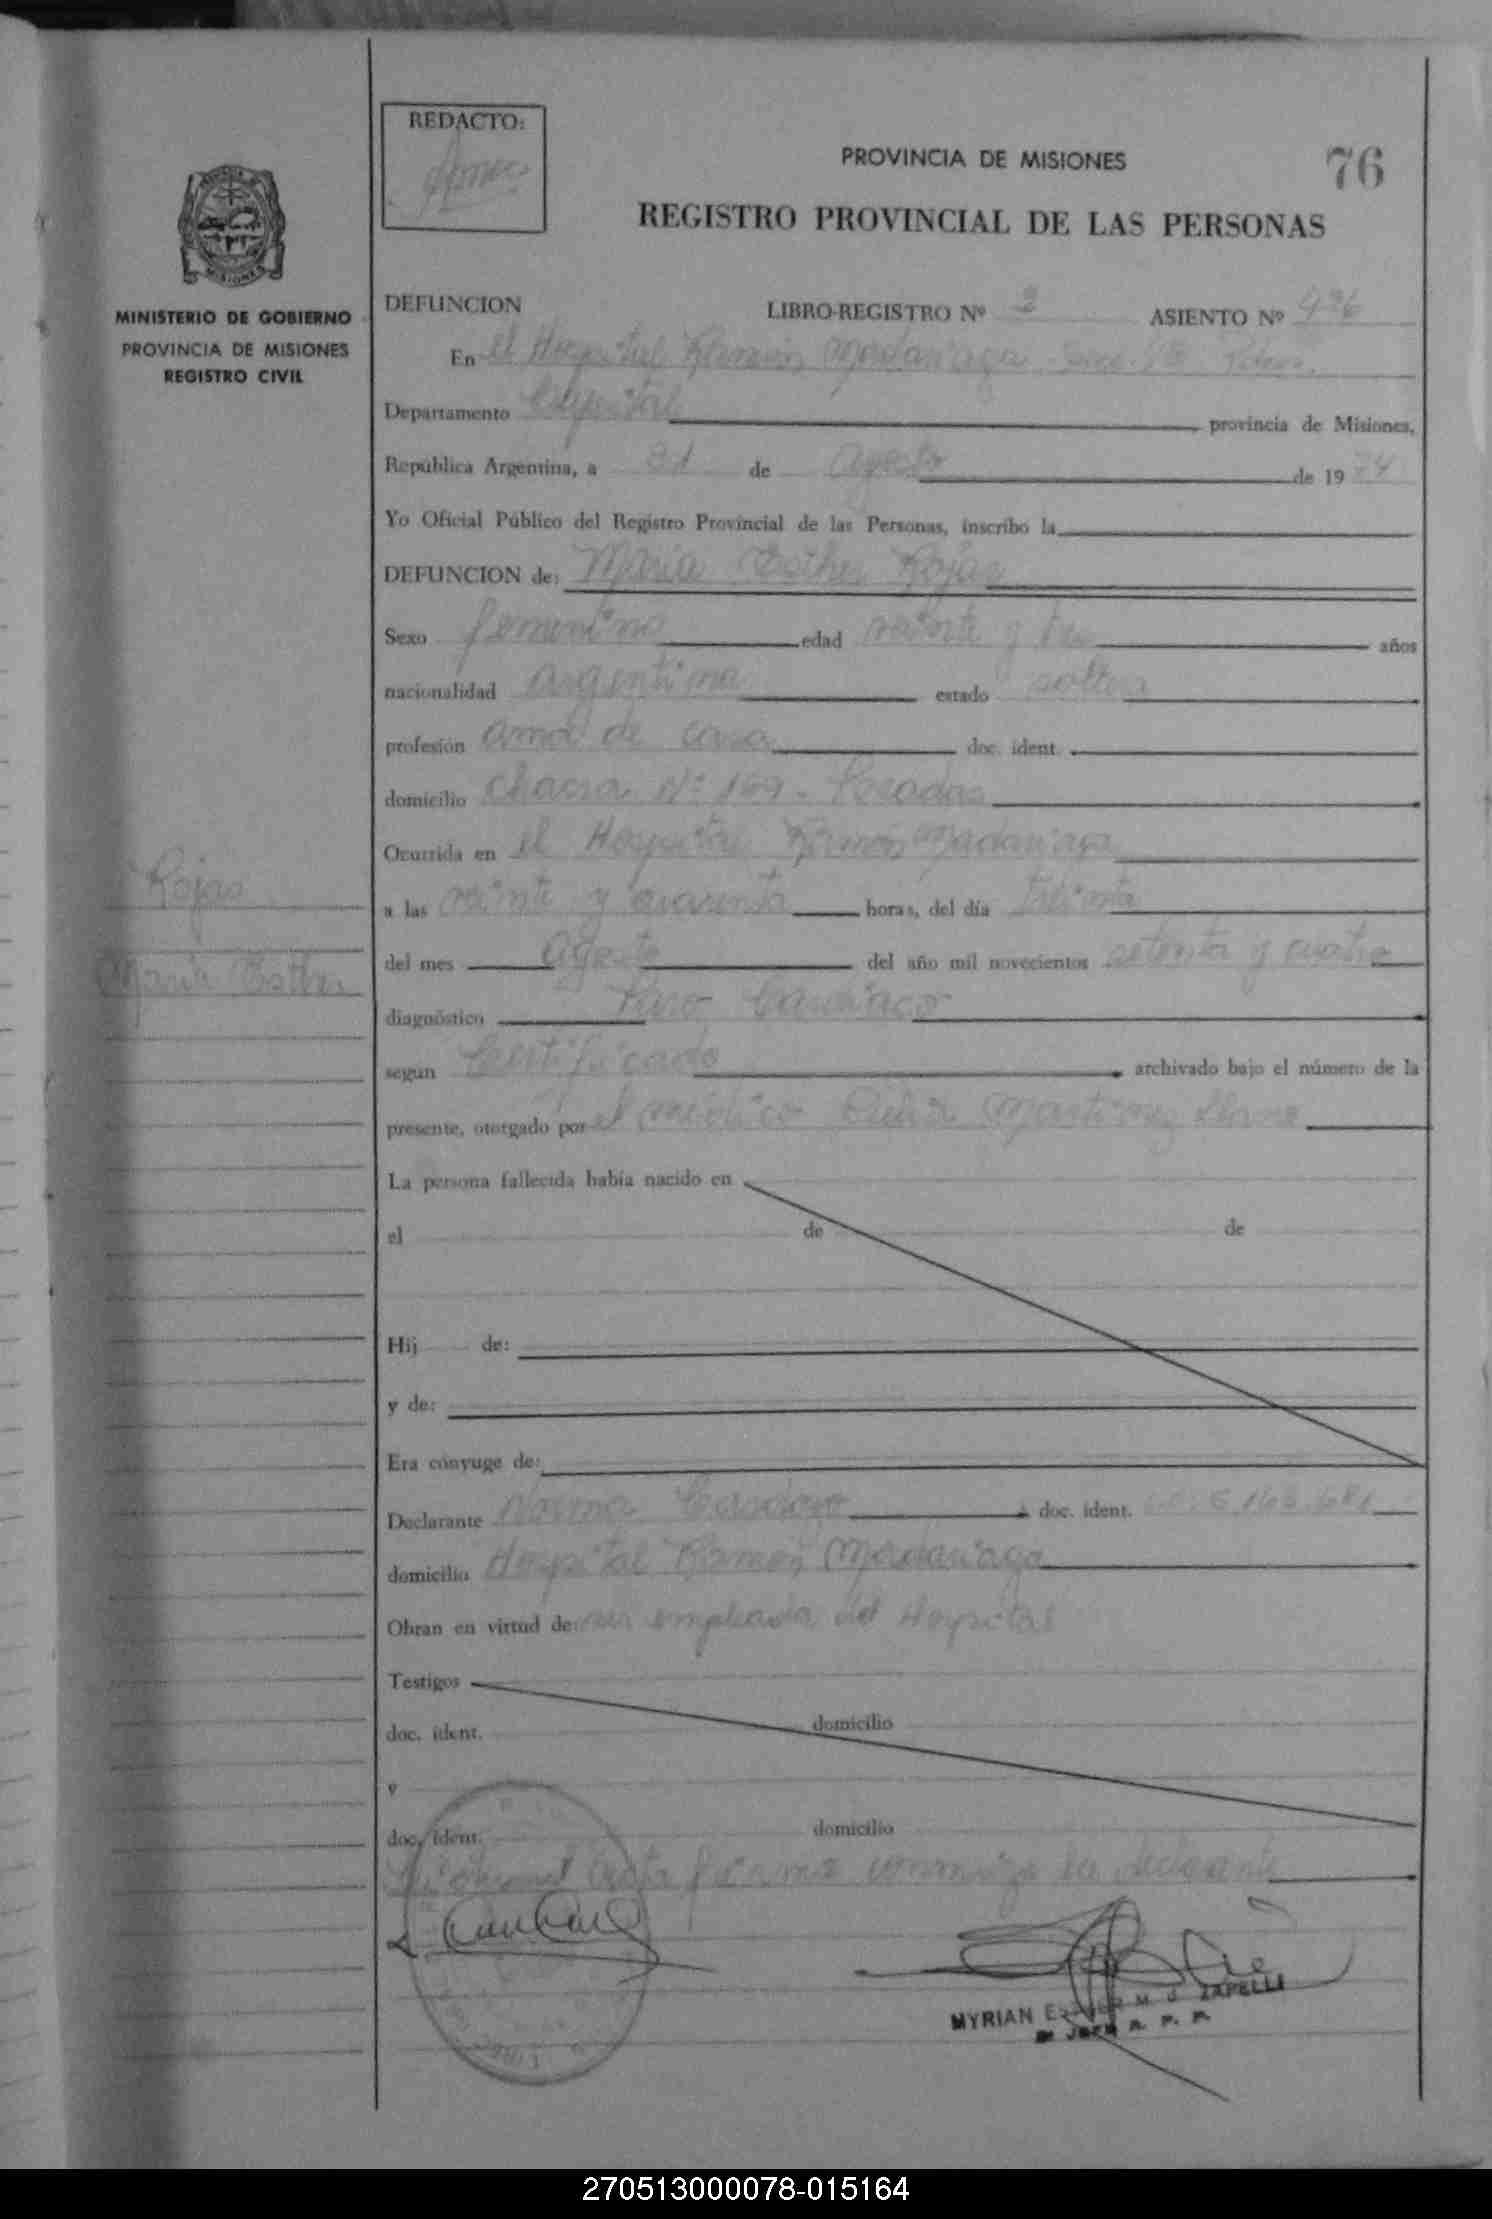 REDACTO:
PROVINCIA DE MISIONES
76
REGISTRO PROVINCIAL DE LAS PERSONAS
MISIONES
MINISTERIO DE GOBIERNO
PROVINCIA DE MISIONES
REGISTRO CIVIL
DEFUNCION LIBRO-REGISTRO Nº 3 ASIENTO Nº
En el Hospital Ramón Madariaga
Departamento Capital provincia de Misiones,
República Argentina, a 31 de Agosto de 19 74
Yo Oficial Público del Registro Provincial de las Personas, inscribo la
DEFUNCION de: María Esther Rojas
Sexo femenino edad veinte y tres años
nacionalidad argentina estado soltera
profesión ama de casa doc. ident.
domicilio Chacra Nº 159 - Posadas
Ocurrida en el Hospital Ramón Madariaga
Rojas
a las veinte y cuarenta horas, del día treinta
del mes Agosto del año mil novecientos setenta y cuatro
María Esther
diagnóstico Paro Cardíaco
según Certificado archivado bajo el número de la
presente, otorgado por el médico Martinez
La persona fallecida había nacido en
el de de
Hij de:
y de:
Era cónyuge de:
Declarante Norma doc. ident.
domicilio Hospital Ramón Madariaga
Obran en virtud de: ser empleada del Hospital
Testigos
doc. ident. domicilio
y
doc. ident. domicilio
Leída el Acta firma conmigo la declarante
MYRIAN ESTHER M. J. ZAPELLI
JEFE R. P. P.
270513000078-015164